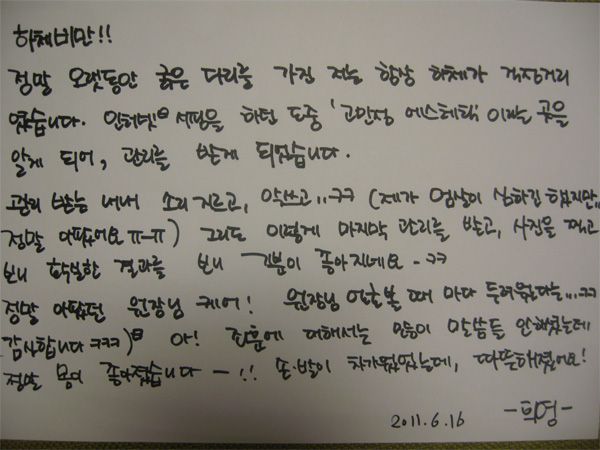 하체비만!!
정말 오랫동안 굵은 다리를 가진 저는 항상 하체가 걱정거리
였습니다. 인터넷 서핑을 하던 도중 '고민정 에스테틱' 이라는 곳을
알게 되어, 관리를 받게 되었습니다.
관리 받는 내내 소리지르고, 악쓰고..ㅋㅋ (제가 엄살이 심하긴 했지만,,
정말 아팠어요 ㅠ-ㅠ) 그래도 이렇게 마지막 관리를 받고, 사진을 찍고
보니 확실한 결과를 보니 기분이 좋아지네요 - ㅋㅋ
정말 아팠던 원장님 케어! 원장님 얼굴볼 때 마다 두려웠다는...ㅋㅋ
감사합니다 ㅋㅋㅋ) 아! 에 대해서는 많이 말씀들 안해주셨는데
정말 몸이 좋아졌습니다 -!! 손·발이 차가웠었는데, 따뜻해졌어요!
2011.6.16 -희정-